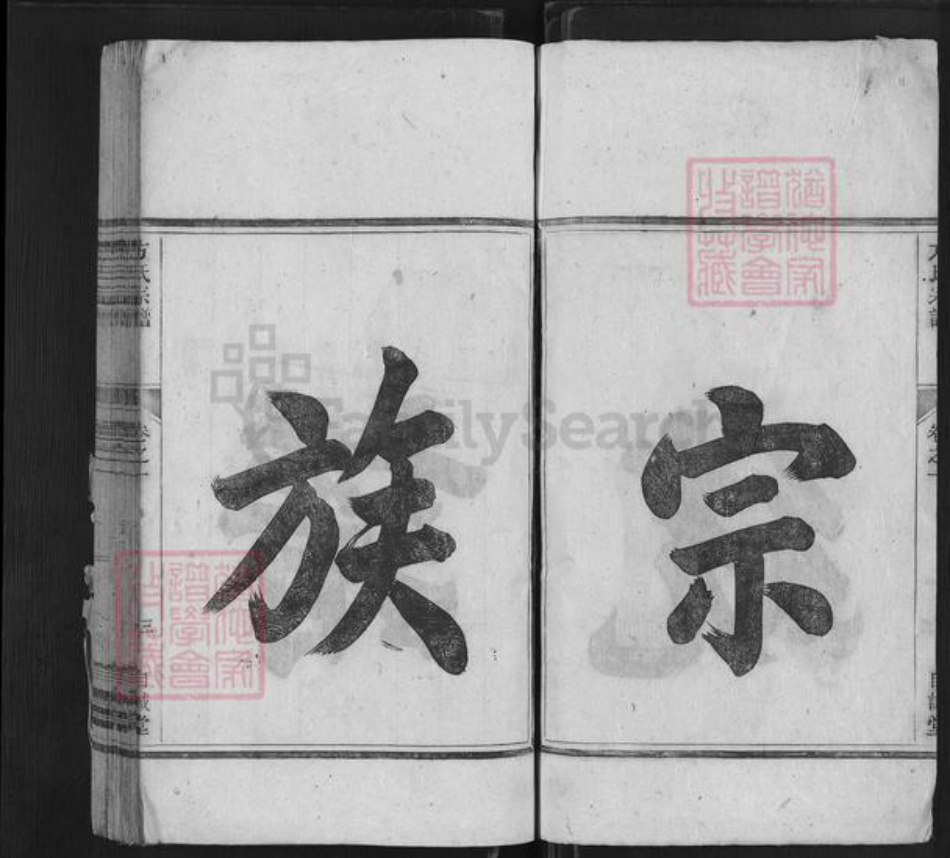 宗
族
方氏宗譜
卷之一
FamilySearch
猶他家
譜學會
收藏
猶他家
譜學會
收藏